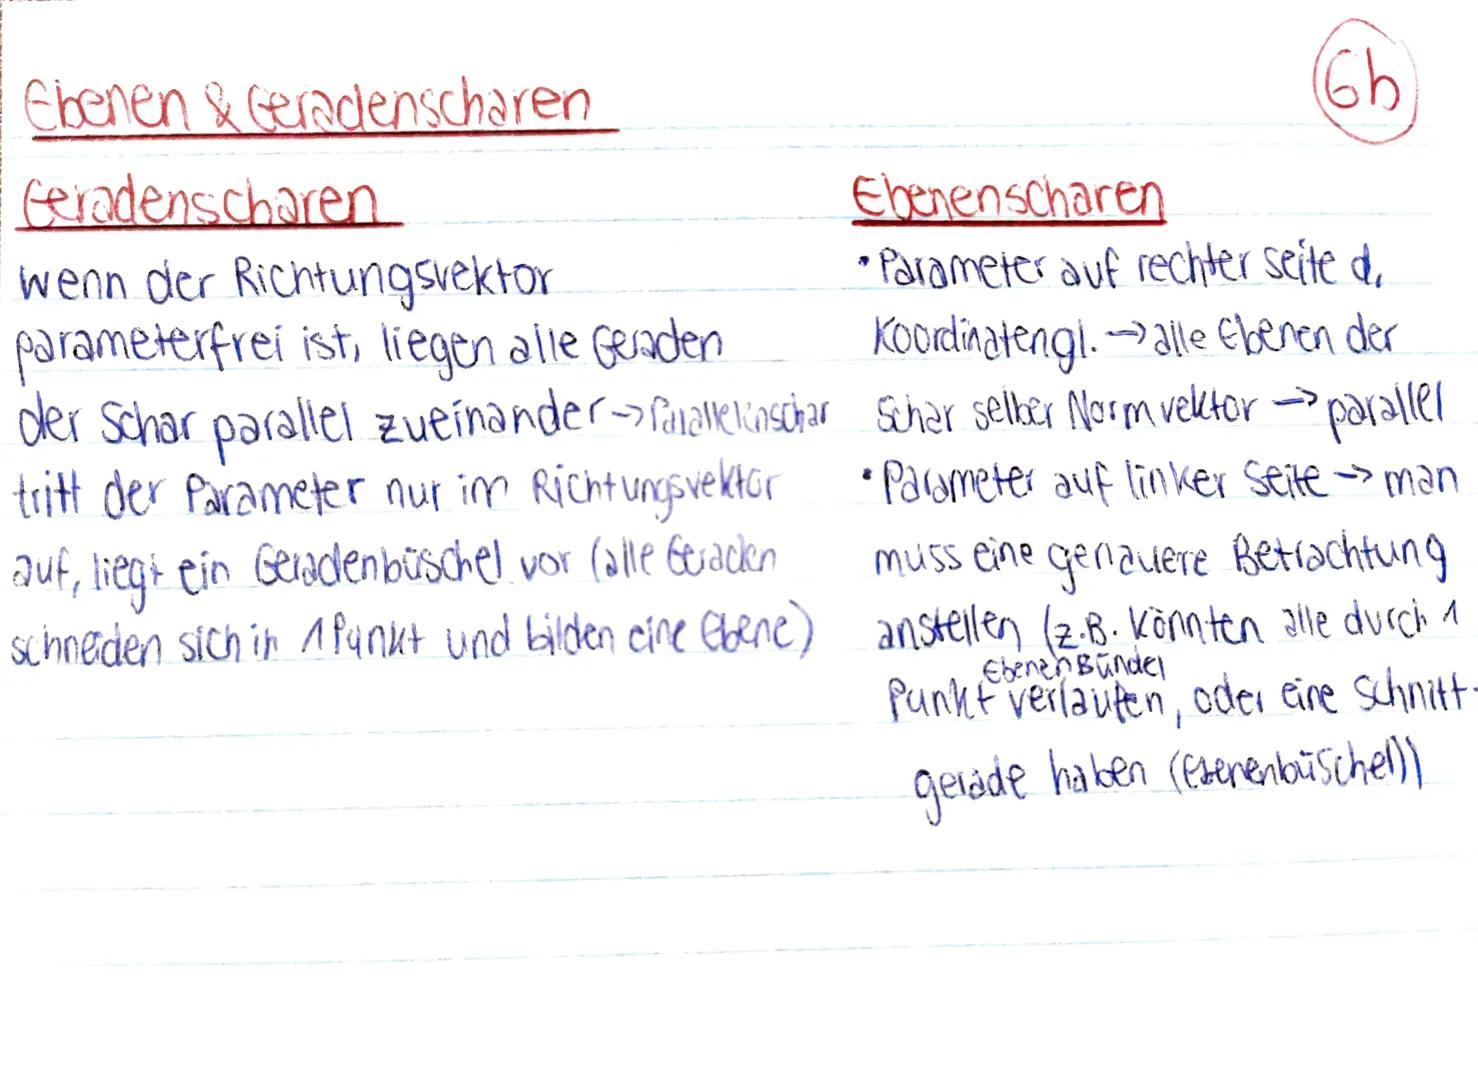 Ebenen & Geradenscharen
6b
Geradenscharen
wenn der Richtungsvektor
parameterfrei ist, liegen alle Geraden
der Schar parallel zueinander → Parallelenschar
tritt der Parameter nur im Richtungsvektor
auf, liegt ein Geradenbüschel vor (alle Geraden
schneiden sich in 1 Punkt und bilden eine Ebene)
Ebenenscharen
• Parameter auf rechter seite d.
Koordinatengl. → alle Ebenen der
Schar selber Normvektor → parallel
• Parameter auf linker Seite → man
muss eine genauere Betrachtung
anstellen (z.B. könnten alle durch 1
EbenenBündel
Punkt verlaufen, oder eine Schnitt-
gerade haben (Ebenenbüschel))